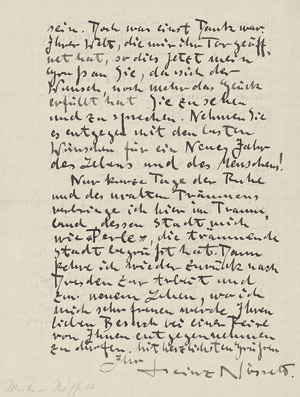 sein. Doch was einst Dank war
Ihrer Welt, die mir ihr Tor geöff-
net hat, so dies jetzt mein
Gruß an Sie, da sich der
Wunsch, noch mehr das Glück
erfüllt hat Sie zu sehen
und zu sprechen. Nehmen Sie
es entgegen mit den besten
Wünschen für ein Neues Jahr
des Lebens und des Menschen!
Nur kurze Tage der Ruhe
und des uralten Träumens
verbringe ich hier im Traum-
land dessen Stadt mich
wie „Perle“, die träumende
Stadt begrüßt hat. Dann
kehre ich wieder zurück nach
Dresden zur Arbeit und
zu neuem Leben, wo ich
mich sehr freuen werde Ihren
lieben Besuch bei einer Reise
von Ihnen entgegennehmen
zu dürfen. Mit herzlichsten Grüßen
Ihr
Heinz